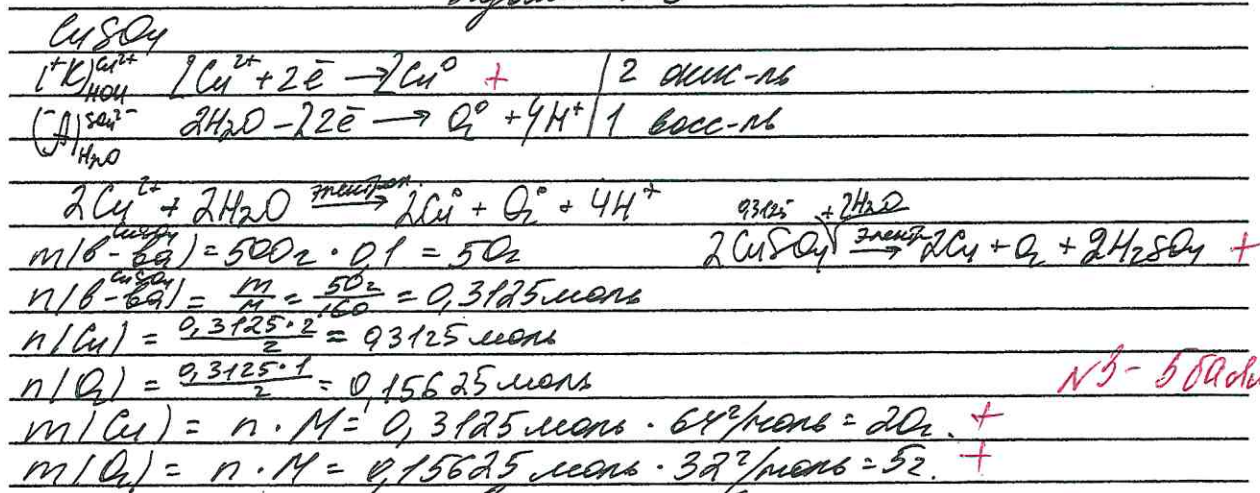 CuSO₄
(⁺K) Cu²⁺ HOH 2Cu²⁺ + 2ē → 2Cu⁰ + | 2 окис-ль
(⁻A) SO₄²⁻ H₂O 2H₂O - 22ē → O₂⁰ + 4H⁺ | 1 восс-ль
2Cu²⁺ + 2H₂O электрол. → 2Cu⁰ + O₂⁰ + 4H⁺
0,3125 + 2H₂O
2CuSO₄ элект. → 2Cu + O₂ + 2H₂SO₄ +
m(в-ва CuSO₄) = 500г · 0,1 = 50г
n(в-ва CuSO₄) = m/M = 50г/160 = 0,3125 моль
n(Cu) = 0,3125·2/2 = 0,3125 моль
n(O₂) = 0,3125·1/2 = 0,15625 моль
N3 - 5 балл
m(Cu) = n · M = 0,3125 моль · 64 г/моль = 20г. +
m(O₂) = n · M = 0,15625 моль · 32 г/моль = 5г. +